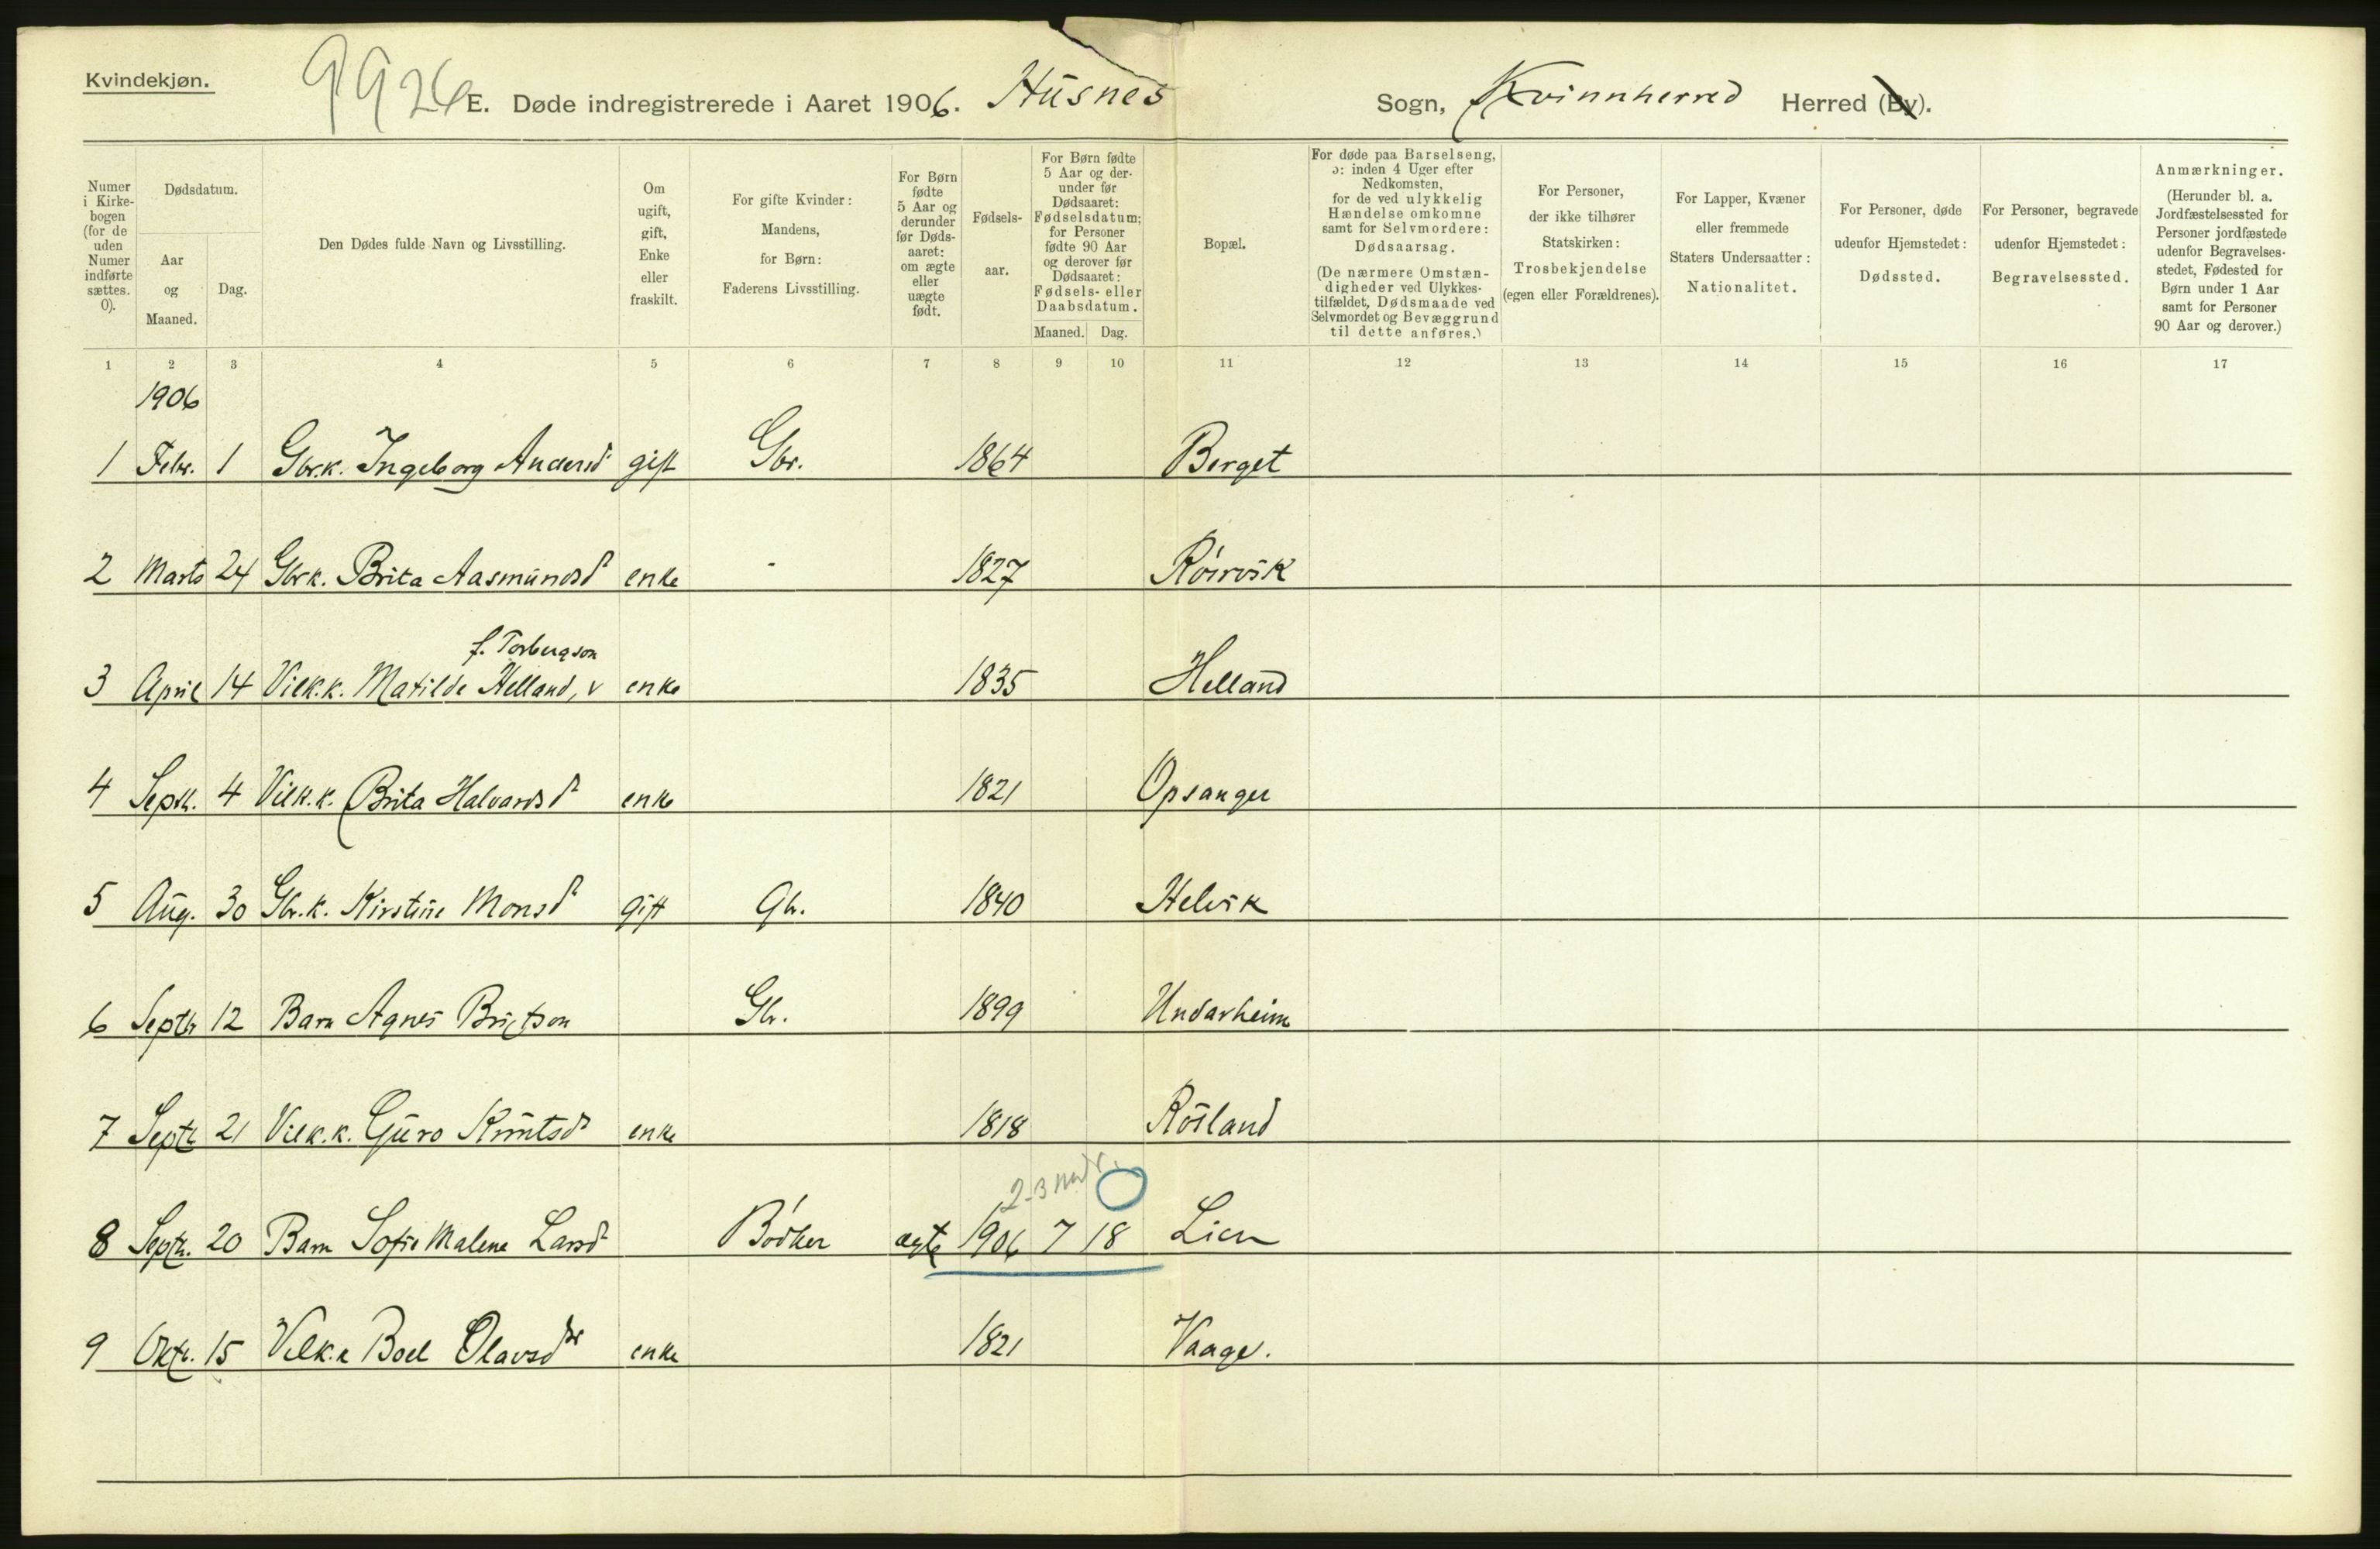 Kvindekjøn.
9926
E. Døde indregistrerede i Aaret 1906. Husnes Sogn, Kvinnherred Herred (By).
Numer i Kirke-bogen (for de uden Numer indførte sættes. 0).
Dødsdatum.
Aar og Maaned.
Dag.
Den Dødes fulde Navn og Livsstilling.
Om ugift, gift, Enke eller fraskilt.
For gifte Kvinder: Mandens, for Børn: Faderens Livsstilling.
For Børn fødte 5 Aar og derunder før Døds-aaret: om ægte eller uægte født.
Fødsels-aar.
For Børn fødte 5 Aar og der-under før Dødsaaret: Fødselsdatum; for Personer fødte 90 Aar og derover før Dødsaaret: Fødsels- eller Daabsdatum.
Maaned. Dag.
Bopæl.
For døde paa Barselseng, ɔ: inden 4 Uger efter Nedkomsten, for de ved ulykkelig Hændelse omkomne samt for Selvmordere: Dødsaarsag.
(De nærmere Omstæn-digheder ved Ulykkes-tilfældet, Dødsmaade ved Selvmordet og Bevæggrund til dette anføres.)
For Personer, der ikke tilhører Statskirken: Trosbekjendelse (egen eller Forældrenes).
For Lapper, Kvæner eller fremmede Staters Undersaatter: Nationalitet.
For Personer, døde udenfor Hjemstedet: Dødssted.
For Personer, begravede udenfor Hjemstedet: Begravelsessted.
Anmærkninger.
(Herunder bl. a. Jordfæstelsessted for Personer jordfæstede udenfor Begravelses-stedet, Fødested for Børn under 1 Aar samt for Personer 90 Aar og derover.)
1 2 3 4 5 6 7 8 9 10 11 12 13 14 15 16 17
1906
1 Febr. 1 Gbr.k. Ingeborg Andersd gift Gbr. 1864 Berget
2 Marts 24 Gbr.k. Brita Aasmundsd enke - 1827 Röirvik
f. Torbergson
3 April 14 Vilk.k. Matilde Helland, v enke 1835 Helland
4 Septb. 4 Vilk.k. Brita Halvardsd enke 1821 Opsanger
5 Aug. 30 Gbr.k. Kirstine Monsd gift Gb. 1840 Helvik
6 Septb 12 Barn Agnes Brigtson Gb. 1899 Undarheim
7 Septb 21 Vilk.k. Guro Knutsd enke 1818 Rösland
2-3 mdr.
8 Septb. 20 Barn Sofie Malene Larsd Bödker ægte 1906 7 18 Lien
9 Oktb. 15 Vilk.k Boel Olavsdtr enke 1821 Vaage.